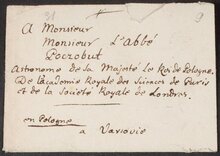 A Monsieur
Monsieur L'Abbé
Poczobut
Astronome de sa Majesté le Roi de Pologne
De l'Academie Royale des Siences de Paris
et de la Société Royale de Londres.
en Pologne
a Varsovie